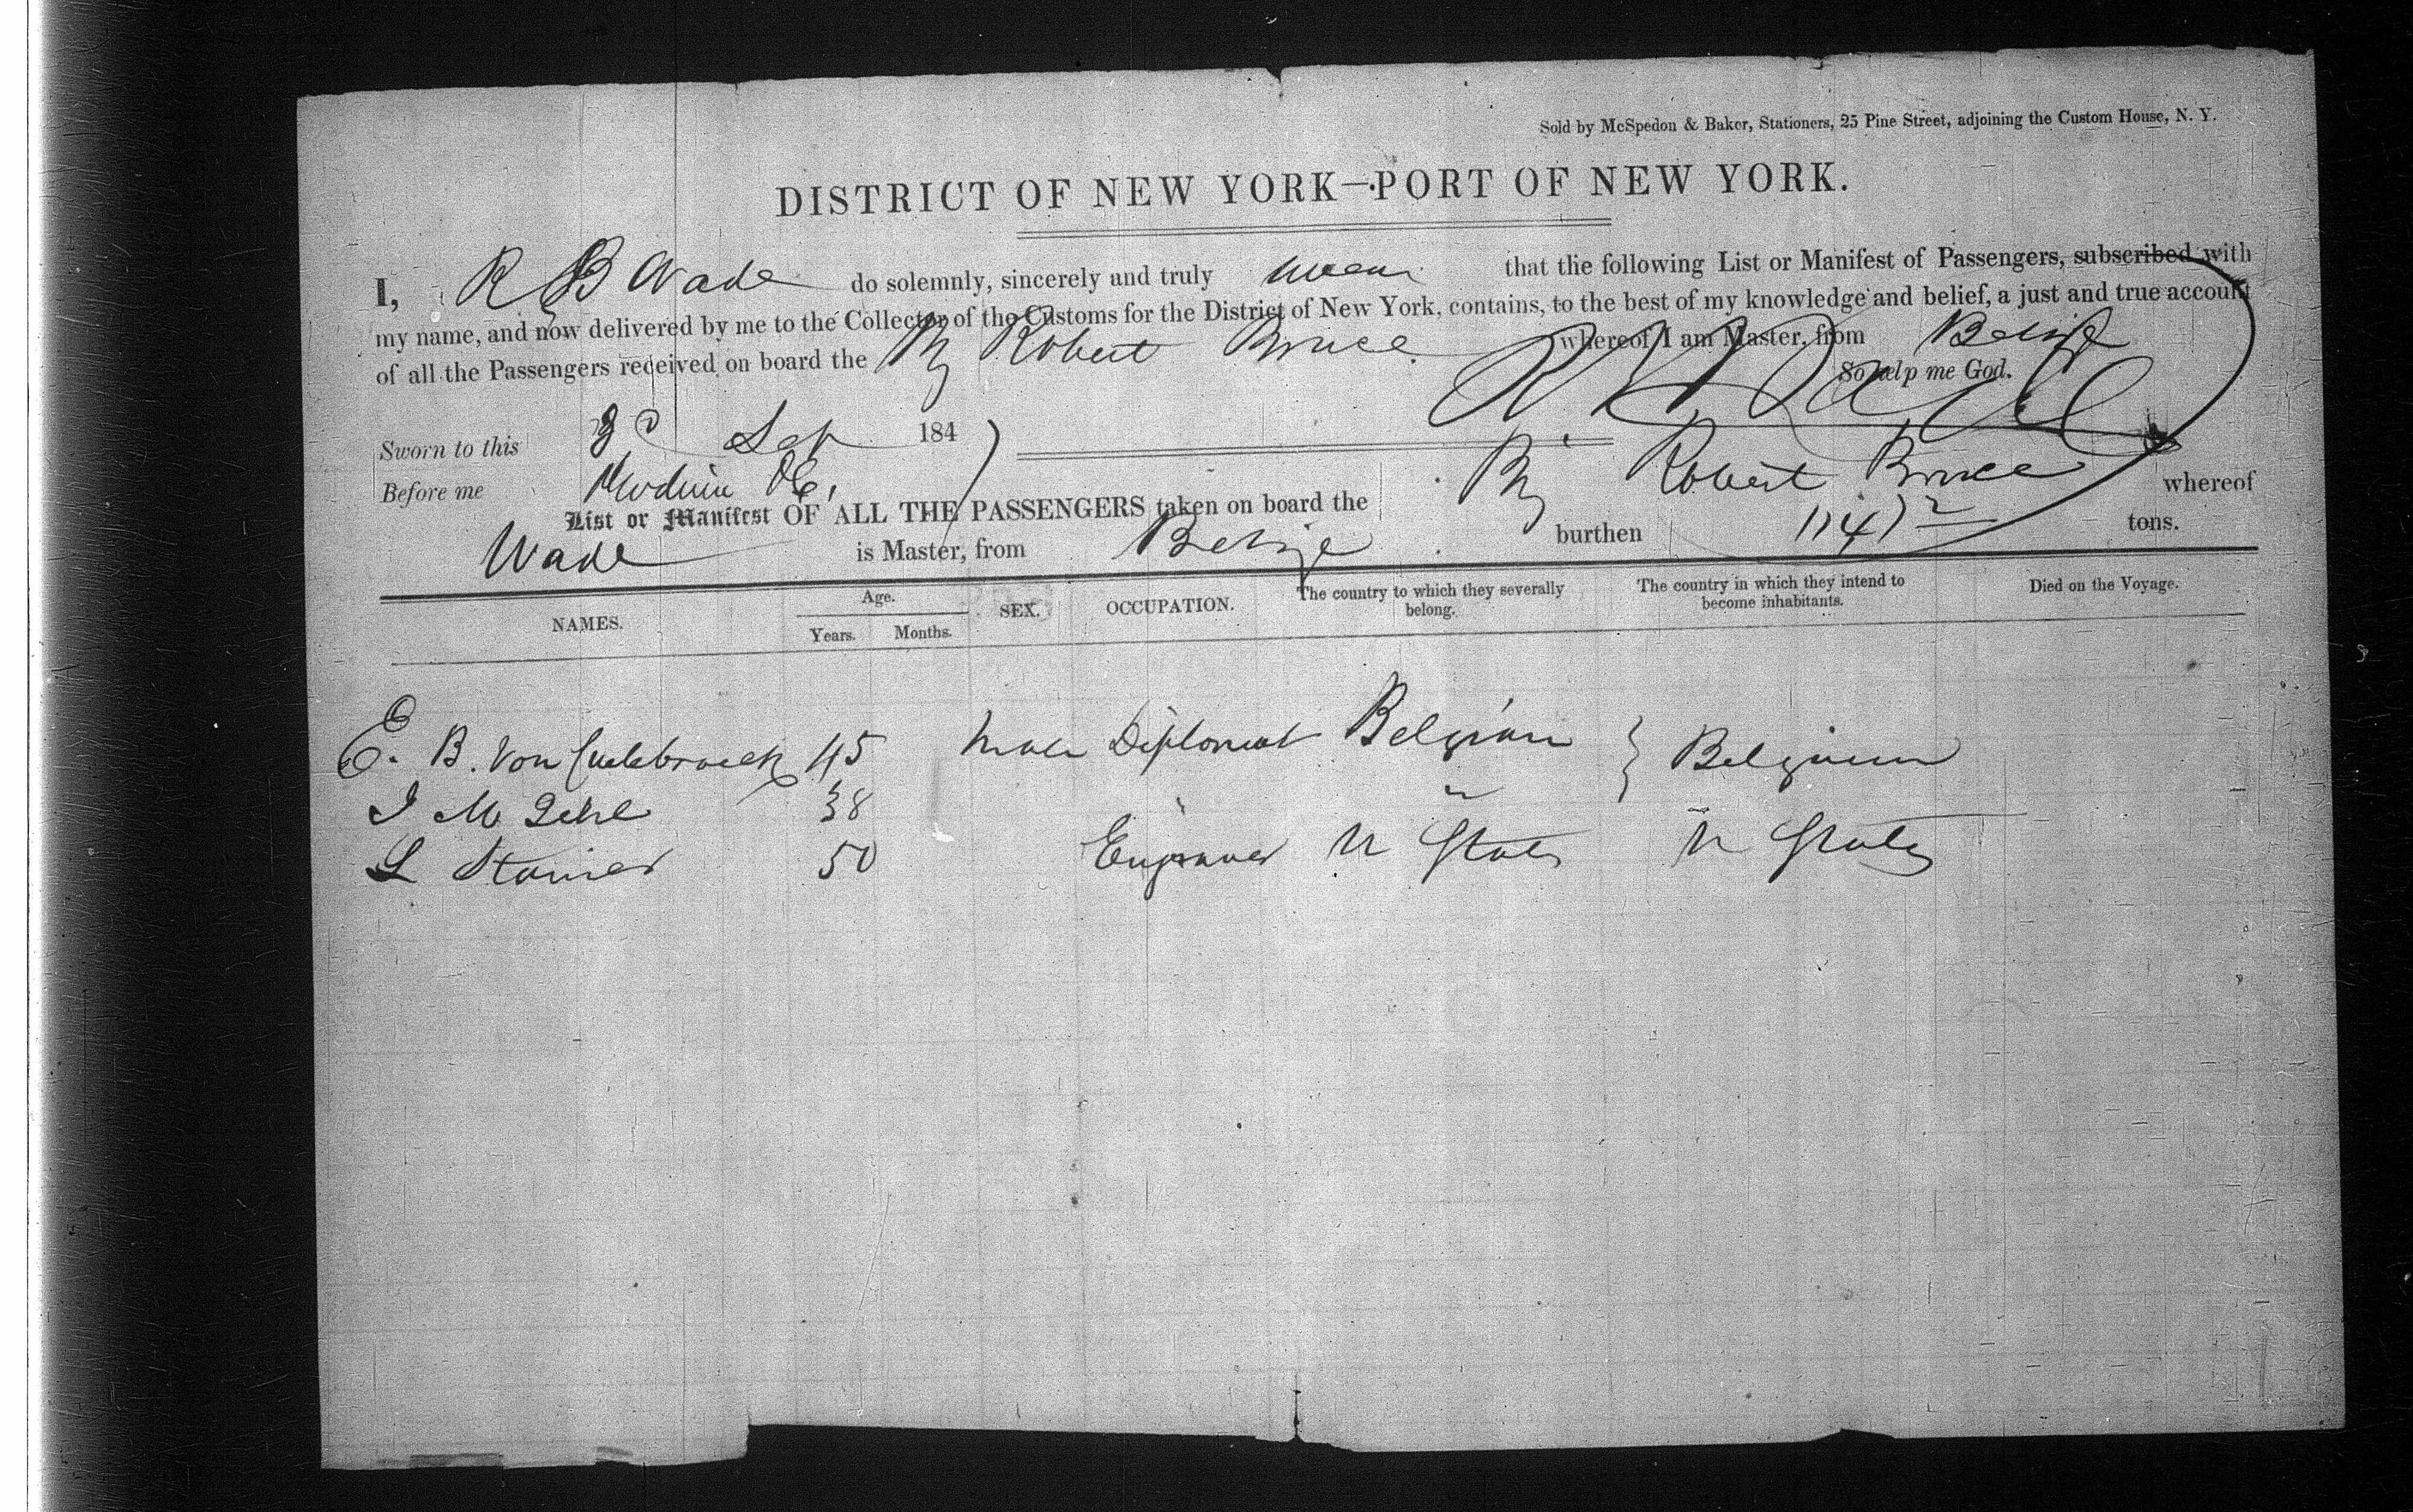 Sold by McSpedon & Baker, Stationers, 25 Pine Street, adjoining the Custom House, N. Y.
DISTRICT OF NEW YORK—PORT OF NEW YORK.
I, R B Wade do solemnly, sincerely and truly swear that the following List or Manifest of Passengers, subscribed with
my name, and now delivered by me to the Collector of the Customs for the District of New York, contains, to the best of my knowledge and belief, a just and true account
of all the Passengers received on board the Robert Bruce whereof I am Master, from Belize
So help me God.
Sworn to this Sep 184
Before me
List or Manifest OF ALL THE PASSENGERS taken on board the Robert Bruce whereof
Wade is Master, from Belize burthen tons.
NAMES. Age. Years. Months. SEX. OCCUPATION. The country to which they severally belong. The country in which they intend to become inhabitants. Died on the Voyage.
E. B. Von 45 Male Diplomat Belgium } Belgium
J M 38 "
L Stainer 50 Engraver U States U States